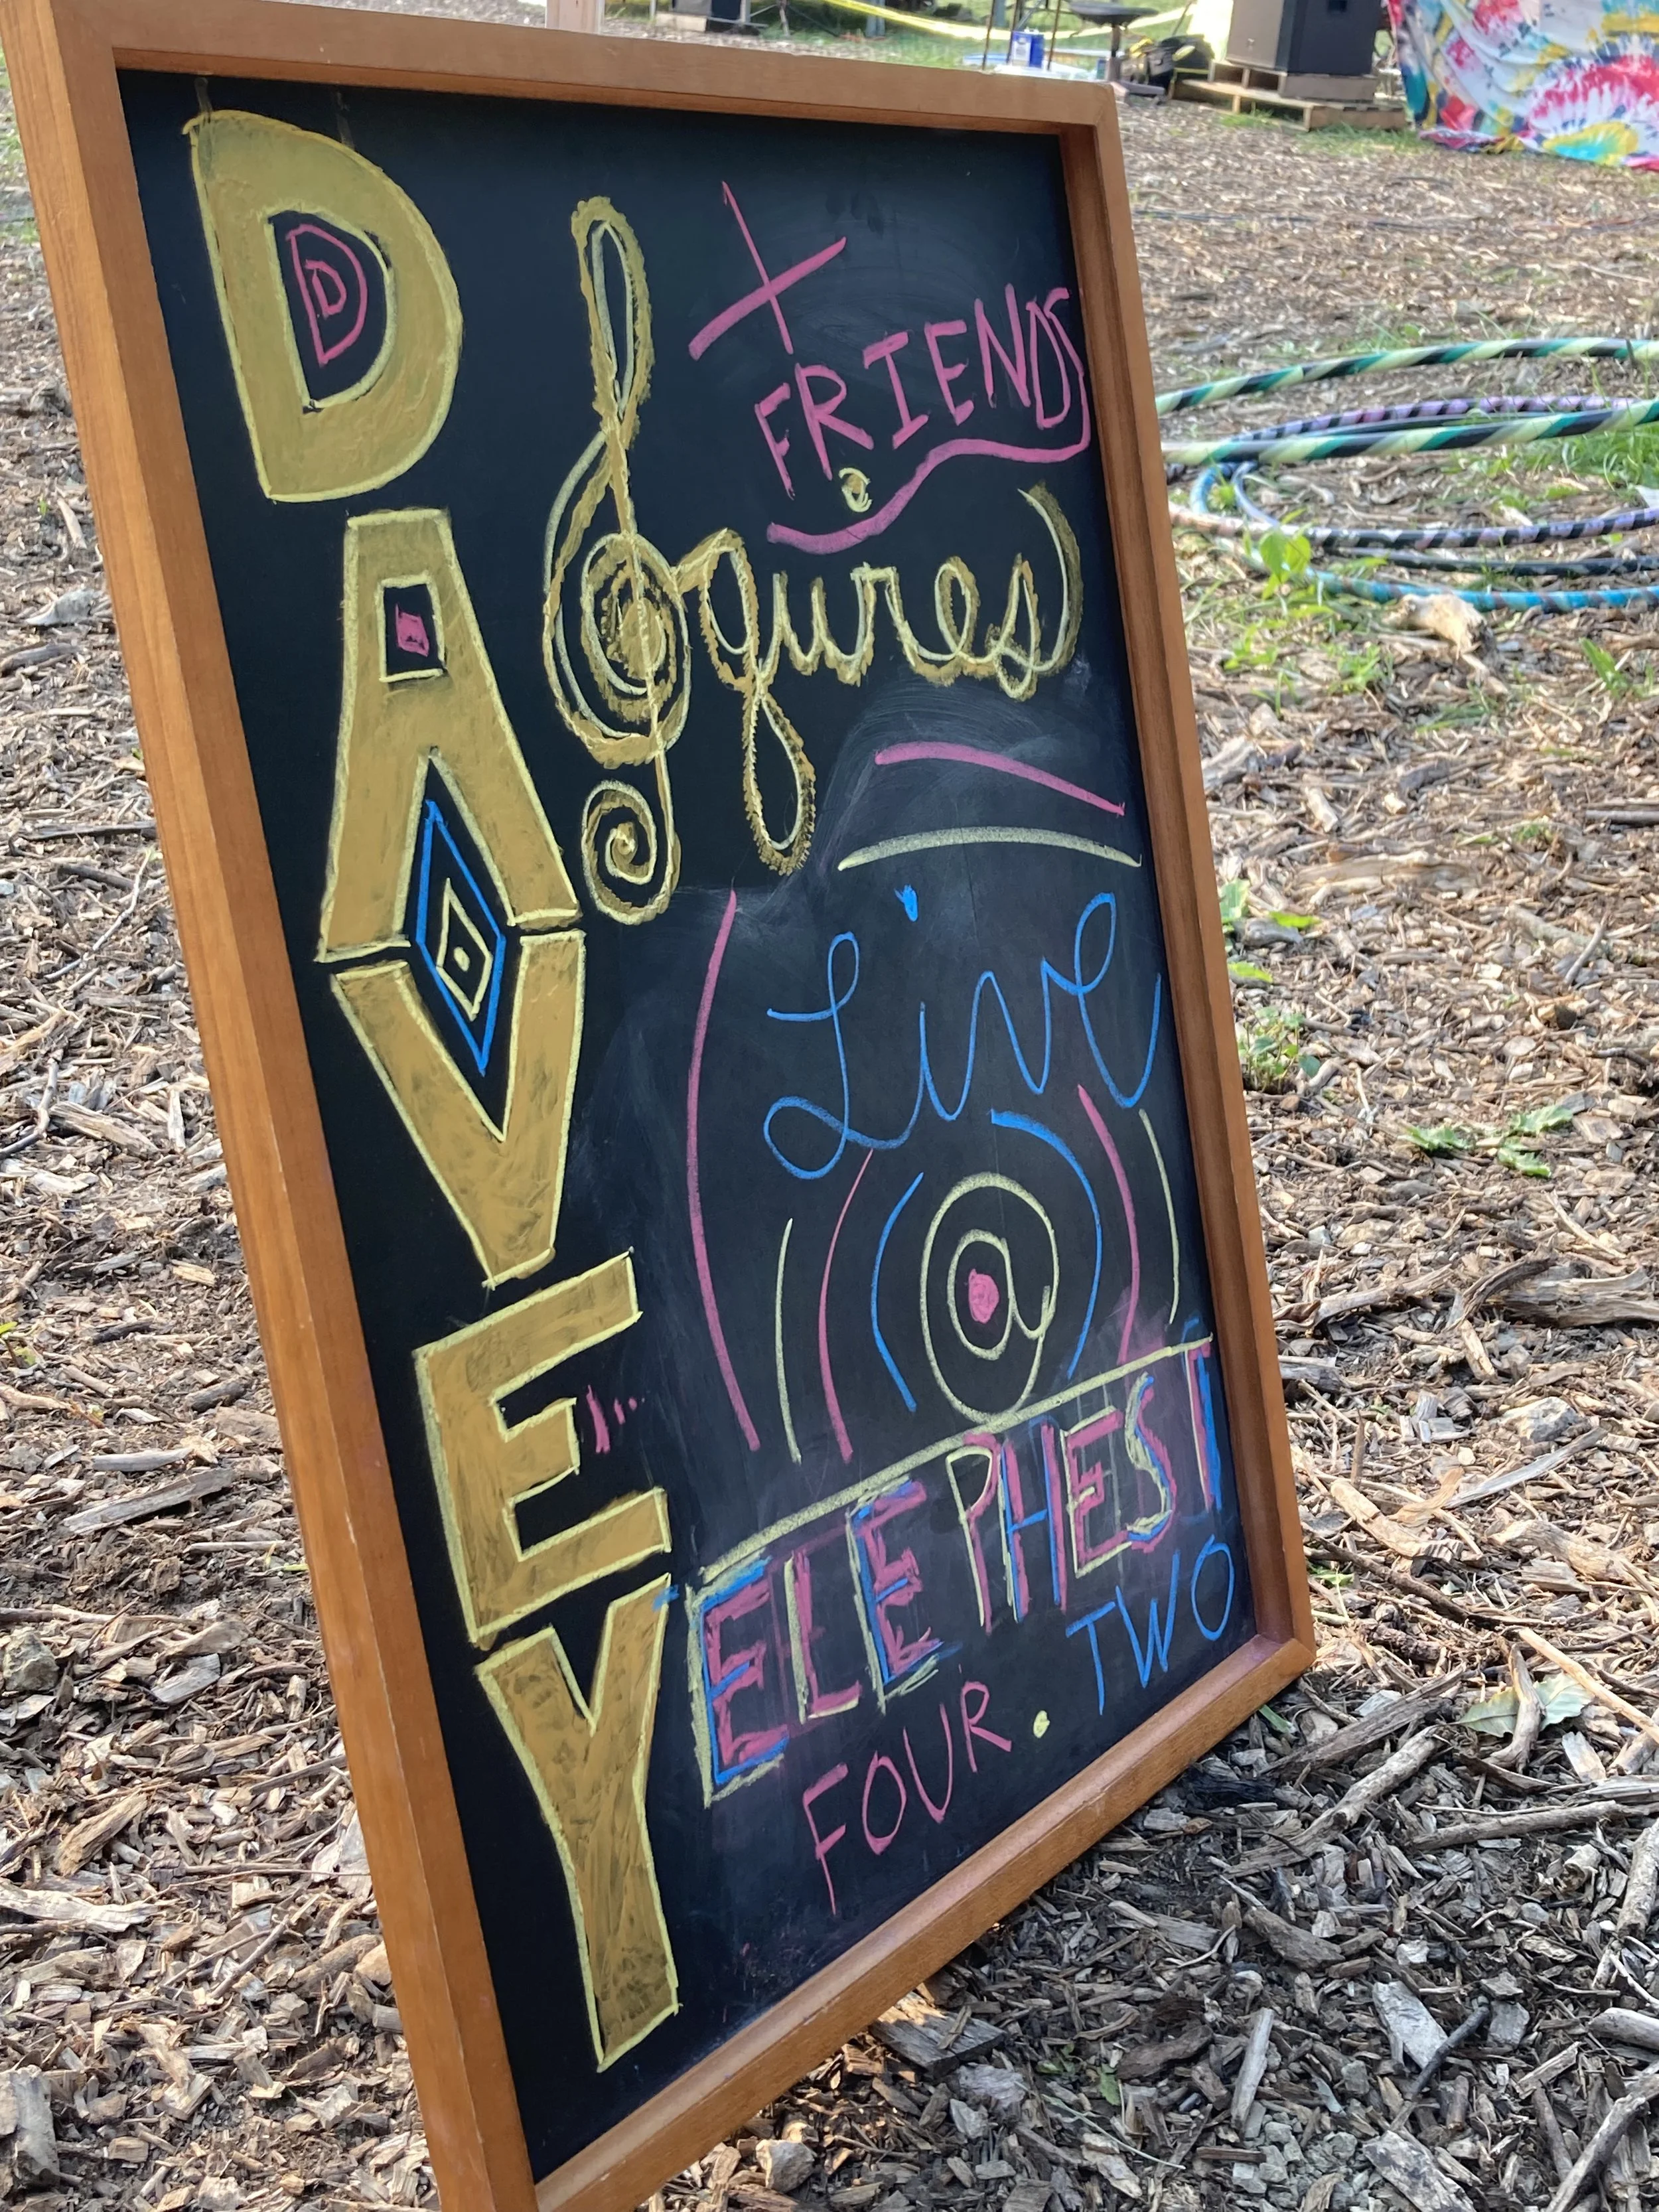 DAVEY
+
FRIENDS
figures
Live
@
ELEPHEST
FOUR.TWO